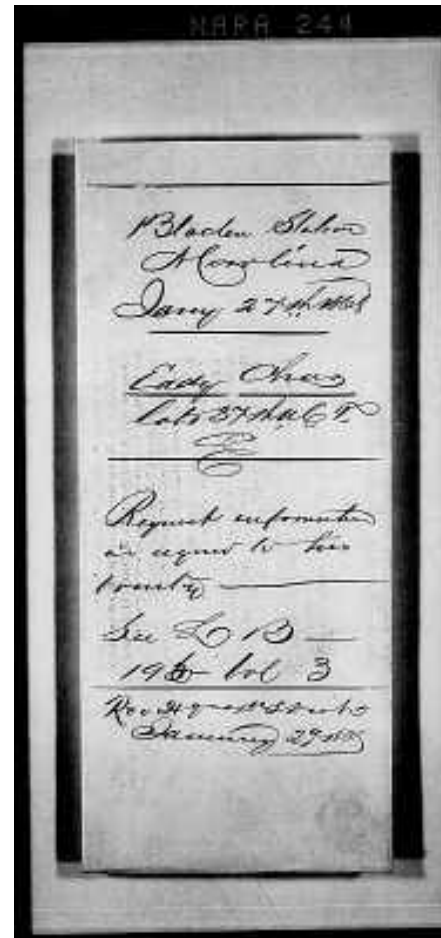 NARA 244
Bladen Station
N Carolina
Jany 27th 1868
Eady Chas
late 37th U C T
E
Request information
in regard to his
bounty
See L B
195 Vol 3
Rec
January 29